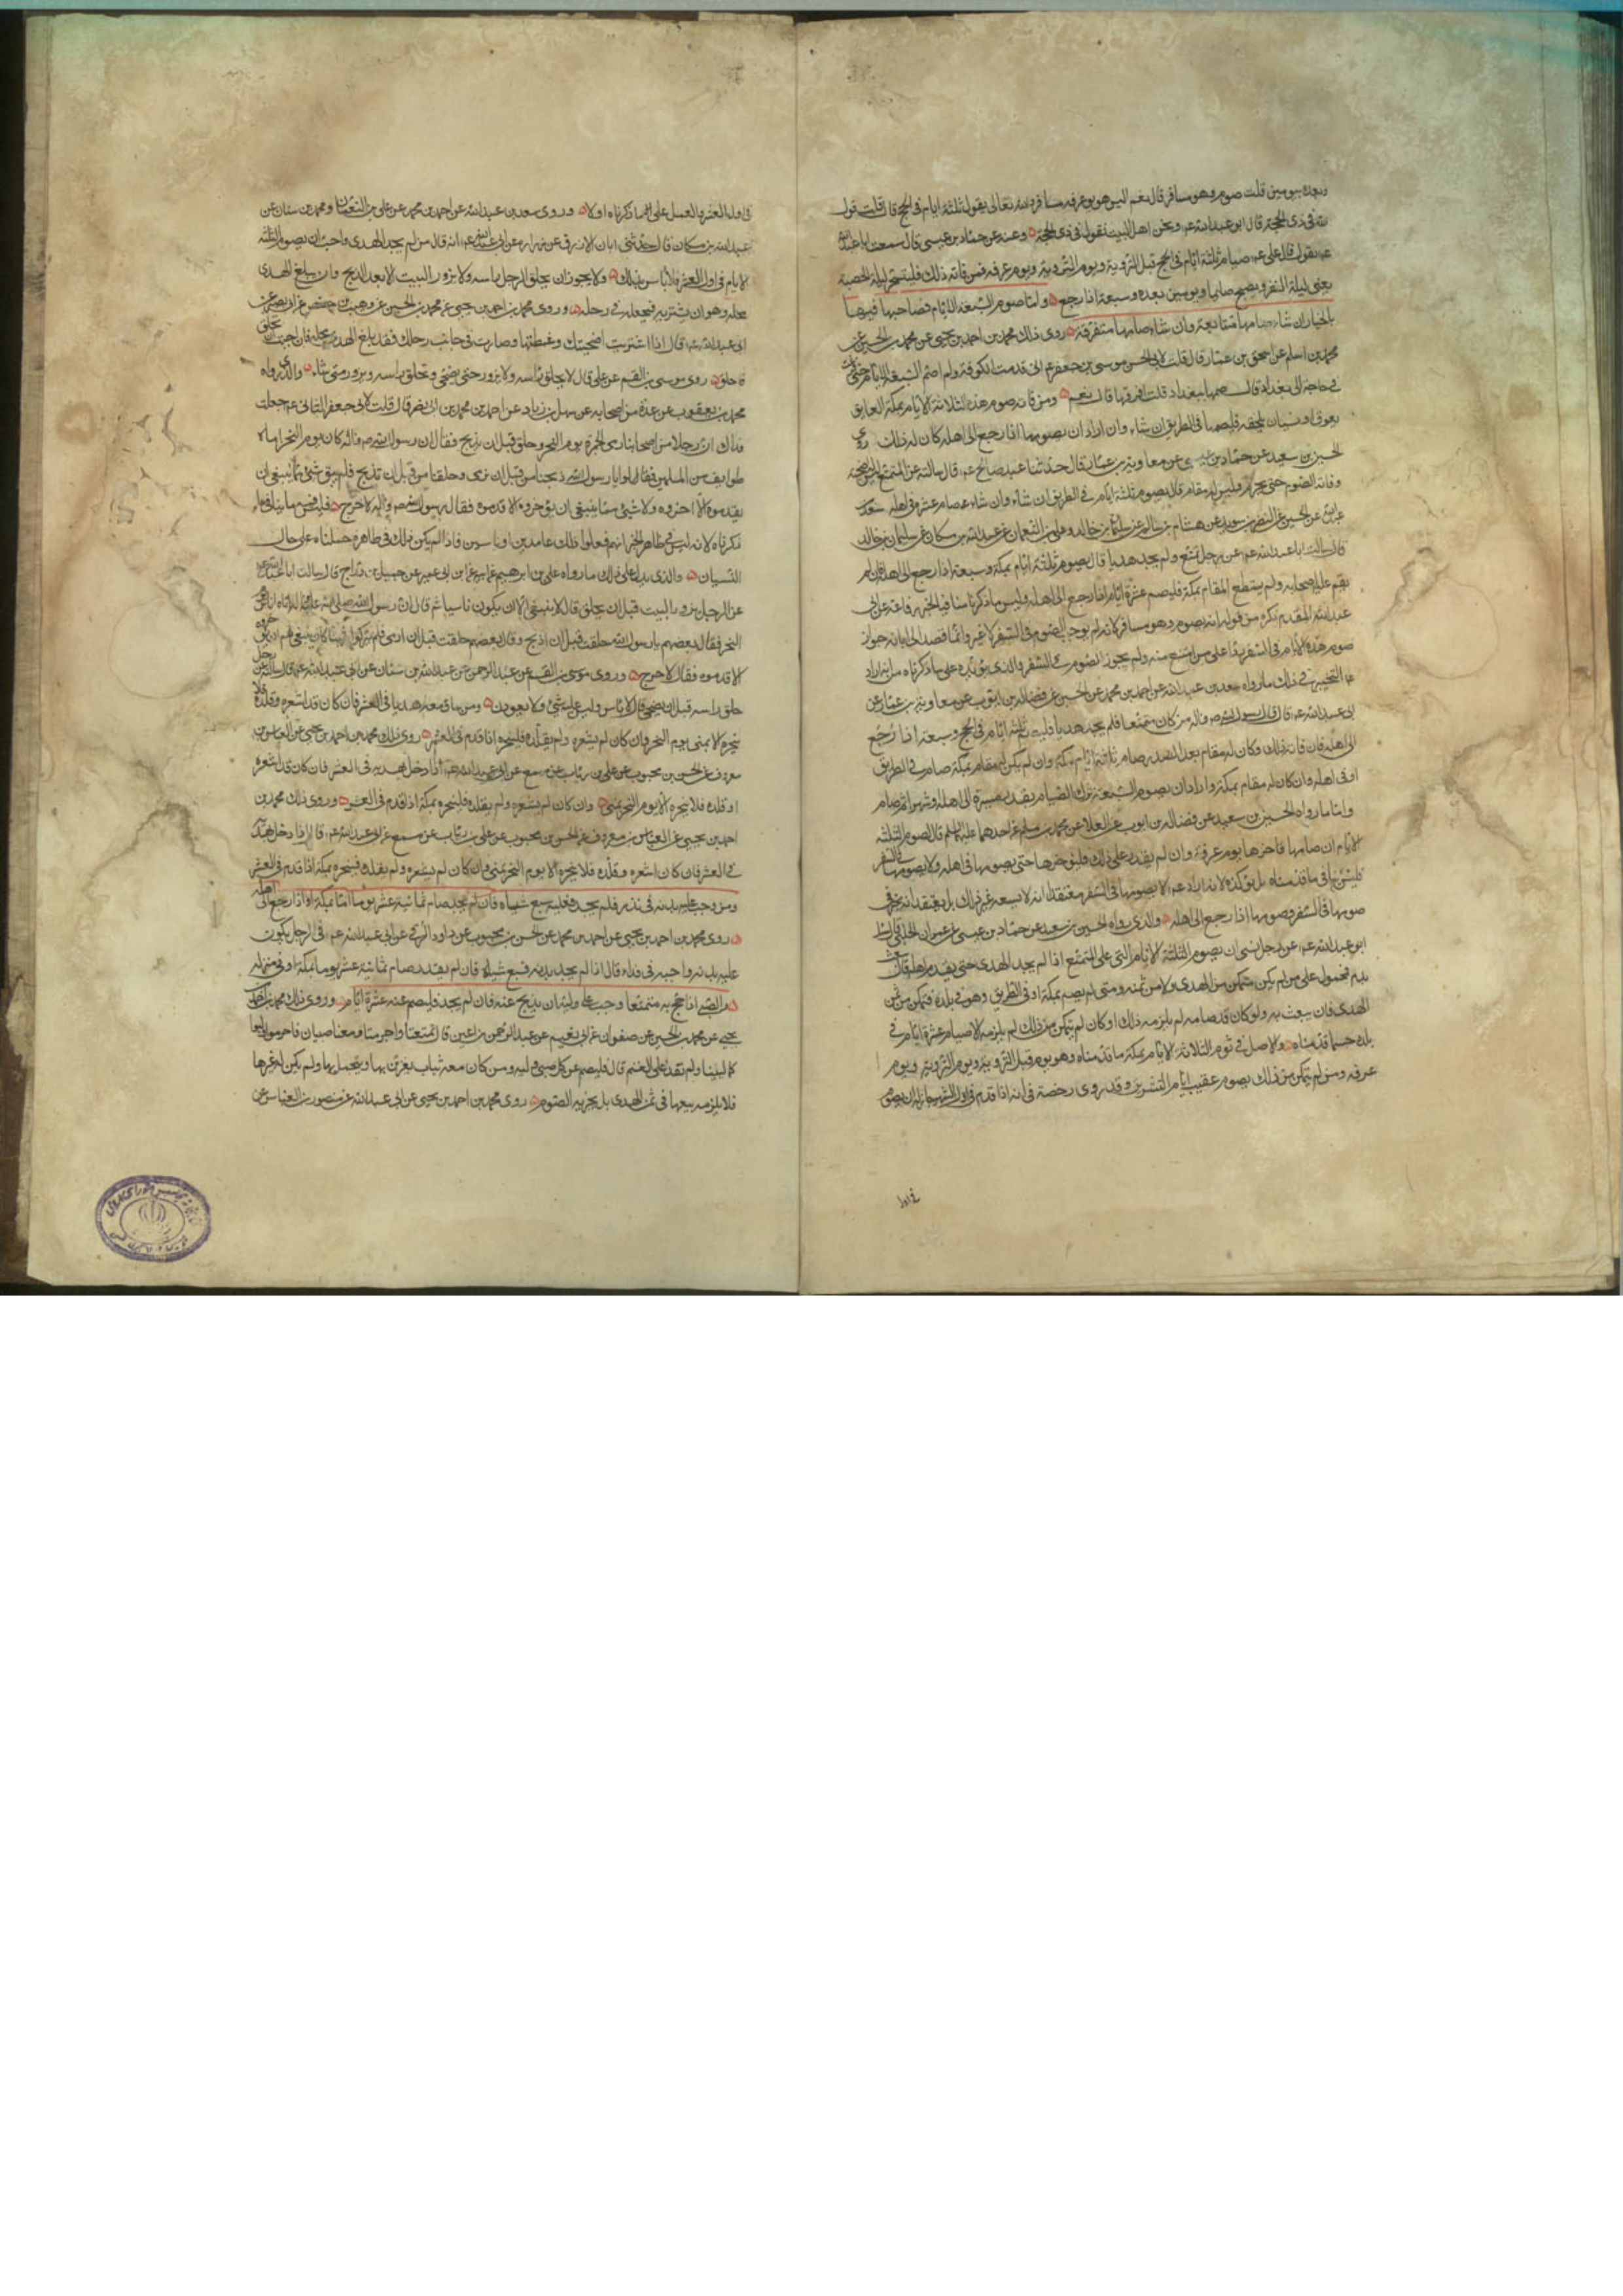 وبعده بيومين قلت صوم وهو مسافر قال نعم اليس هو يوم عرفه مسافر والله تعالى يقول ثلثة ايام في الحج قال قلت قول
الله في ذي الحجة قال ابو عبدالله عم ونحن اهل البيت نقول في ذي الحجة وعنه عن حماد بن عيسى قال سمعت ابا عبدالله
عم يقول قال علي عم صيام ثلثة ايام في الحج قبل التروية ويوم التروية ويوم عرفه فمن فاته ذلك فليتسحر ليلة الحصبة
يعني ليلة النفر ويصبح صايما ويومين بعده وسبعة اذا رجع واما صوم السبعة الايام فصاحبها فيها
بالخيار ان شاء صامها متتابعة وان شاء صامها متفرقة روى ذلك محمد بن احمد بن يحيى عن محمد بن الحسين عن
محمد بن اسلم عن اسحق بن عمار قال قلت لابي الحسن موسى بن جعفر عم اني قدمت الكوفة ولم اصم السبعة الايام حتى
في حاجة الى بغداد قال صمها ببغداد قلت افرقها قال نعم ومن فاته صوم هذه الثلاثة الايام بمكة لعايق
يعوق او نسيان يلحقه فليصمها في الطريق ان شاء وان اراد ان يصومها اذا رجع الى اهله كان له ذلك روى
الحسين بن سعيد عن حماد بن عن معاوية بن عمار قال حدثنا عبد صالح عم قال سالته عن المتمتع
وفاته الصوم حتى يخرج وليس له مقام قال يصوم ثلثة ايام في الطريق ان شاء وان شاء صام عشرة في اهله سعد بن
عبدالله عن الحسين عن النضر بن سويد عن هشام بن سالم عن سليمان بن خالد وعلي بن النعمان عن عبدالله بن مسكان عن سليمان بن خالد
قال سالت ابا عبدالله عم عن رجل تمتع ولم يجد هديا قال يصوم ثلثة ايام بمكة وسبعة اذا رجع الى اهله فان لم
يقم عليه اصحابه ولم يستطع المقام بمكة فليصم عشرة ايام اذا رجع الى اهله وليس ما ذكرناه منافيا لخبر رفاعة عن ابي
عبدالله المقدم ذكره من قوله انه يصوم وهو مسافر لانه لم يوجب الصوم في السفر لا غير وانما قصد الى ابانه جواز
صوم هذه الايام في السفر ردا على من امتنع منه ولم يجوز الصوم في السفر والذي يؤكد على ما ذكرناه من انه اراد
عم التخيير في ذلك ما رواه سعد بن عبدالله عن احمد بن محمد عن الحسين عن فضالة بن ايوب عن معاوية بن عمار عن
ابي عبدالله عم قال قال رسول الله صم واله من كان متمتعا فلم يجد هديا فليصم ثلثة ايام في الحج وسبعة اذا رجع
الى اهله فان فاته ذلك وكان له مقام بعد الصدر صام ثلثة ايام بمكة وان لم يكن له مقام بمكة صام في الطريق
او في اهله وان كان له مقام بمكة واراد ان يصوم السبعة ترك الصيام بقدر مسيره الى اهله او شهرا ثم صام
واما ما رواه الحسين بن سعيد عن فضالة بن ايوب عن العلا عن محمد بن مسلم عن احدهما عليهما السلم قال الصوم الثلثة
الايام ان صامها فاخرها يوم عرفة وان لم يقدر على ذلك فليؤخرها حتى يصومها في اهله ولا يصومها في السفر
فليس ينافي ما قدمناه بل يؤكده لانه اراد عم الا يصومها في السفر معتقدا انه لا يسعه غير ذلك بل يعتقد انه مخير في
صومها في السفر وصومها اذا رجع الى اهله والذي رواه الحسين بن سعيد عن حماد بن عيسى عن عمران الحلبي قال سئل
ابو عبدالله عم عن رجل نسي ان يصوم الثلثة الايام التي على المتمتع اذا لم يجد الهدى حتى يقدم اهله قال يبعث
بدم فمحمول على من لم يكن متمكن من الهدى ولا من ثمنه ومتى لم يصم بمكة او في الطريق وهو في بلده فتمكن من ثمن
الهدى فان يبعث به ولو كان قد صامه لم يلزمه ذلك او كان لم يتمكن من ذلك لم يلزمه الا صيام عشرة ايام في
بلده حسبما قدمناه والاصل في صوم الثلاثة الايام بمكة ما قدمناه وهو يوم قبل التروية ويوم التروية ويوم
عرفه ومن لم يتمكن من ذلك يصوم عقيب ايام التشريق وقد روى رخصة في انه اذا قدم في اول العشر جاز له ان يصوم
في اول
في اول العشر والعمل على ما ذكرناه اولا وروى سعد بن عبدالله عن احمد بن محمد عن علي بن النعمان ومحمد بن سنان عن
عبدالله بن مسكان قال حدثني ابان الازرق عن زرارة عن ابي عبدالله عم انه قال من لم يجد الهدى واحب ان يصوم الثلثة
الايام في اول العشر فلا باس بذلك ولا يجوز ان يحلق الرجل راسه ولا يزور البيت الا بعد الذبح وان يبلغ الهدى
محله وهو ان يشتريه فيجعله في رحله وروى محمد بن احمد بن يحيى عن محمد بن الحسين عن وهيب بن حفص عن ابي بصير عن
ابي عبدالله عم قال اذا اشتريت اضحيتك وغمطتها وصارت في جانب رحلك فقد بلغ الهدى محله فان احببت ان تحلق
فاحلق روى موسى بن القسم عن علي قال لا يحلق راسه ولا يزور حتى يضحي فيحلق راسه ويزور متى شاء والذي رواه
محمد بن يعقوب عن عدة من اصحابه عن سهل بن زياد عن احمد بن محمد بن ابي نصر قال قلت لابي جعفر الثاني عم جعلت
فداك ان رجلا من اصحابنا رمى الجمرة يوم النحر وحلق قبل ان يذبح فقال ان رسول الله صم واله كان يوم النحر اتاه
طوايف من المسلمين فقالوا يا رسول الله ذبحنا من قبل ان نرمى وحلقنا من قبل ان نذبح فلم يبق شئ مما ينبغي ان
يقدموه الا اخروه ولا شئ مما ينبغي ان يؤخروه الا قدموه فقال رسول الله صم واله لا حرج فليس ينافي ما
ذكرناه لانه ليس في ظاهر الخبر انهم فعلوا ذلك عامدين او ناسين فاذا لم يكن ذلك في ظاهره حملناه على حال
النسيان والذي يدل على ذلك ما رواه علي بن ابرهيم عن ابيه عن ابن ابي عمير عن جميل بن دراج قال سالت ابا عبدالله عم
عن الرجل يزور البيت قبل ان يحلق قال لا ينبغي الا ان يكون ناسيا ثم قال ان رسول الله صلى الله عليه واله اتاه اناس يوم
النحر فقال بعضهم يا رسول الله حلقت قبل ان اذبح وقال بعضهم حلقت قبل ان ارمى فلم يتركوا شيئا كان ينبغي لهم ان يؤخروه
الا قدموه فقال لا حرج وروى موسى بن القسم عن عبد الرحمن عن عبدالله بن سنان عن ابي عبدالله عم قال سالته عن رجل
حلق راسه قبل ان يضحي قال لا باس وليس عليه شئ ولا يعودن ومن ساق معه هديا في العشر فان كان قد اشعره وقلده فلا
ينحره الا بمنى يوم النحر وان كان لم يشعره ولم يقلده فلينحره اذا قدم في العشر روى ذلك محمد بن احمد بن يحيى عن العباس بن
معروف عن الحسن بن محبوب عن علي بن رئاب عن مسمع عن ابي عبدالله عم اذا دخل بهديه في العشر فان كان قد اشعره
او قلده فلا ينحره الا يوم النحر بمنى وان كان لم يشعره ولم يقلده فلينحره بمكة اذا قدم في العشر وروى ذلك محمد بن
احمد بن يحيى عن العباس بن معروف عن الحسن بن محبوب عن علي بن رئاب عن مسمع عن ابي عبدالله عم قال اذا دخل بهديه
في العشر فان كان اشعره وقلده فلا ينحره الا يوم النحر بمنى وان كان لم يشعره ولم يقلده فينحره بمكة اذا قدم في العشر
ومن وجب عليه بدنة في نذر فلم يجد فعليه سبع شياه فان لم يجد صام ثمانية عشر يوما اما بمكة او اذا رجع الى اهله
روى محمد بن احمد بن يحيى عن احمد بن محمد عن الحسن بن محبوب عن داود الرقي عن ابي عبدالله عم في الرجل يكون
عليه بدنة واجبة في فداء قال اذا لم يجد بدنة فسبع شياه فان لم يقدر صام ثمانية عشر يوما بمكة او في منزله
والصبي اذا حج به متمتعا وجب على وليه ان يذبح عنه فان لم يجد فليصم عنه عشرة ايام وروى ذلك محمد بن احمد بن
يحيى عن محمد بن الحسين عن صفوان عن ابي نعيم عن عبد الرحمن بن اعين قال تمتعنا واحرمنا ومعنا صبيان فاحرموا ولبوا
كما لبينا ولم نقدر على الغنم قال فليصم عن كل صبي وليه ومن كان معه ثياب يعزيه بها ويتجمل بها ولم يكن له غيرها
فلا يلزمه بيعها في ثمن الهدى بل يجزيه الصوم روى محمد بن احمد بن يحيى عن ابي عبدالله عن منصور بن العباس عن